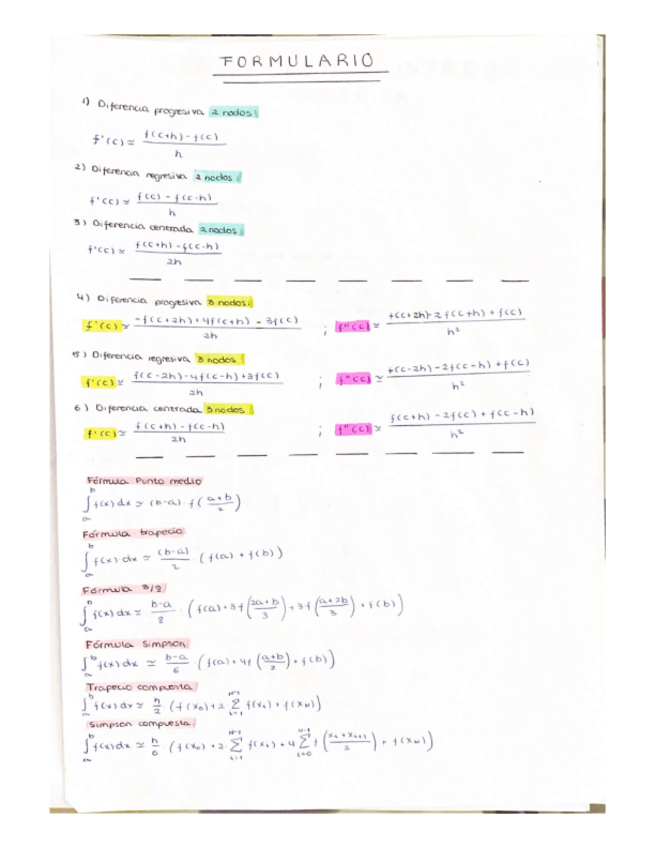 FORMULARIO
1) Diferencia progresiva 2 nodos:
f'(c) ≃ (f(c+h) - f(c)) / h
2) Diferencia regresiva 2 nodos:
f'(c) ≃ (f(c) - f(c-h)) / h
3) Diferencia centrada 2 nodos:
f'(c) ≃ (f(c+h) - f(c-h)) / 2h
4) Diferencia progresiva 3 nodos:
f'(c) ≃ (-f(c+2h) + 4f(c+h) - 3f(c)) / 2h ; f''(c) ≃ (f(c+2h) - 2f(c+h) + f(c)) / h²
5) Diferencia regresiva 3 nodos:
f'(c) ≃ (f(c-2h) - 4f(c-h) + 3f(c)) / 2h ; f''(c) ≃ (f(c-2h) - 2f(c-h) + f(c)) / h²
6) Diferencia centrada 3 nodos:
f'(c) ≃ (f(c+h) - f(c-h)) / 2h ; f''(c) ≃ (f(c+h) - 2f(c) + f(c-h)) / h²
Fórmula Punto medio
∫_a^b f(x) dx ≃ (b-a) · f((a+b)/2)
Fórmula trapecio
∫_a^b f(x) · dx ≃ (b-a)/2 (f(a) + f(b))
Fórmula 3/8
∫_a^b f(x) dx ≃ (b-a)/8 · (f(a) + 3f((2a+b)/3) + 3f((a+2b)/3) + f(b))
Fórmula Simpson
∫_a^b f(x) dx ≃ (b-a)/6 · (f(a) + 4f((a+b)/2) + f(b))
Trapecio compuesta
∫_a^b f(x) dx ≃ h/2 · (f(x₀) + 2 ∑_{i=1}^{N-1} f(xᵢ) + f(x_N))
Simpson compuesta
∫_a^b f(x) dx ≃ h/6 · (f(x₀) + 2 ∑_{i=1}^{N-1} f(xᵢ) + 4 ∑_{i=0}^{N-1} f((xᵢ + xᵢ₊₁)/2) + f(x_N))